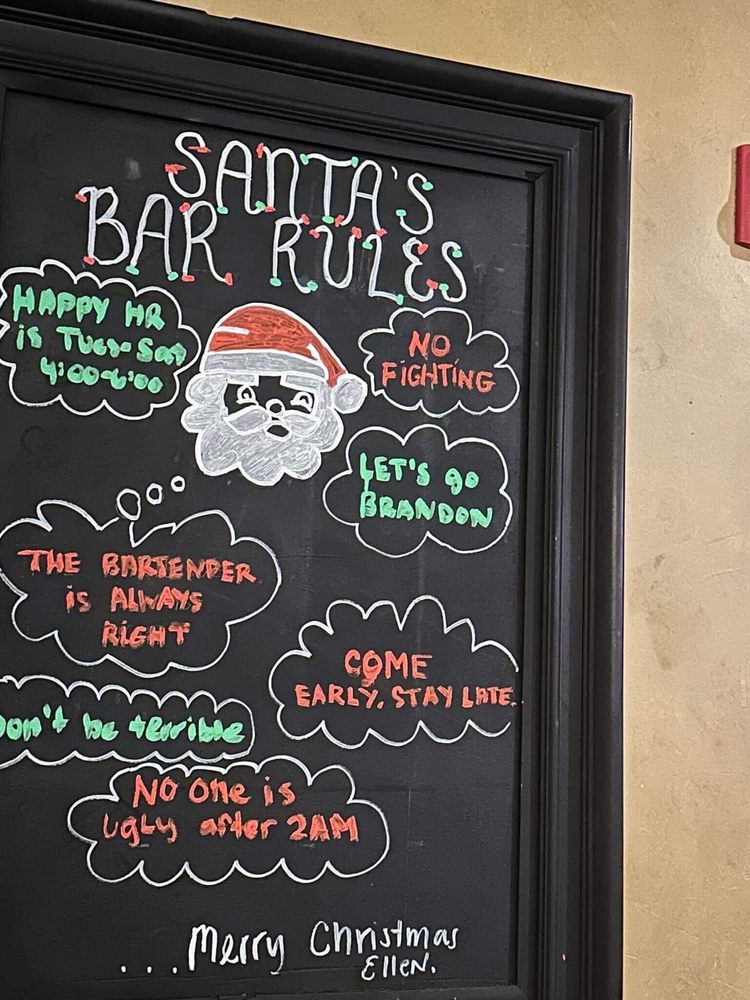 SANTA'S
BAR RULES
HAPPY HR
is TUES-Sat
4:00-6:00
NO
FIGHTING
LET'S go
BRANDON
THE BARTENDER
is ALWAYS
RIGHT
COME
EARLY. STAY LATE.
Don't be terrible
NO One is
UgLy after 2AM
...Merry Christmas
EllEN.